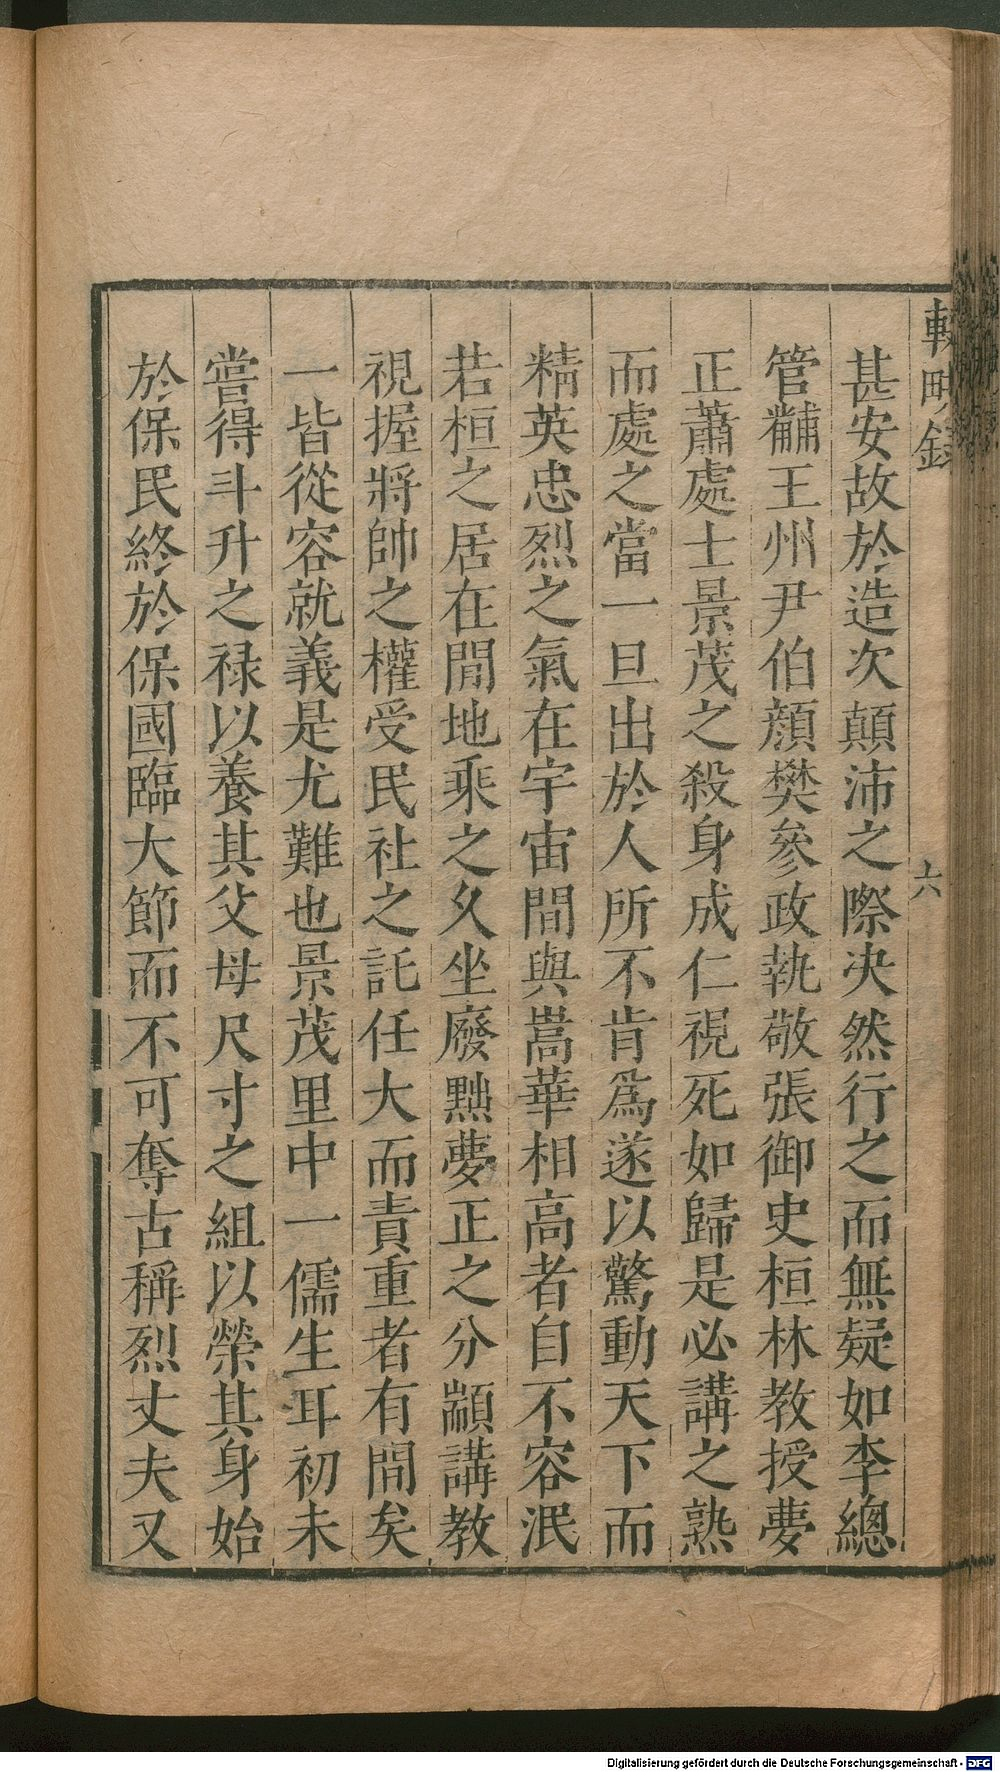 輟畊錄
六
甚安故於造次顛沛之際决然行之而無疑如李總
管黼王州尹伯顏樊參政執敬張御史桓林教授夢
正蕭處士景茂之殺身成仁視死如歸是必講之熟
而處之當一旦出於人所不肯爲遂以驚動天下而
精英忠烈之氣在宇宙間與嵩華相高者自不容泯
若桓之居在閒地乘之久坐廢黜夢正之分顓講教
視握將帥之權受民社之託任大而責重者有間矣
一皆從容就義是尤難也景茂里中一儒生耳初未
嘗得斗升之禄以養其父母尺寸之組以榮其身始
於保民終於保國臨大節而不可奪古稱烈丈夫又
Digitalisierung gefördert durch die Deutsche Forschungsgemeinschaft - DFG